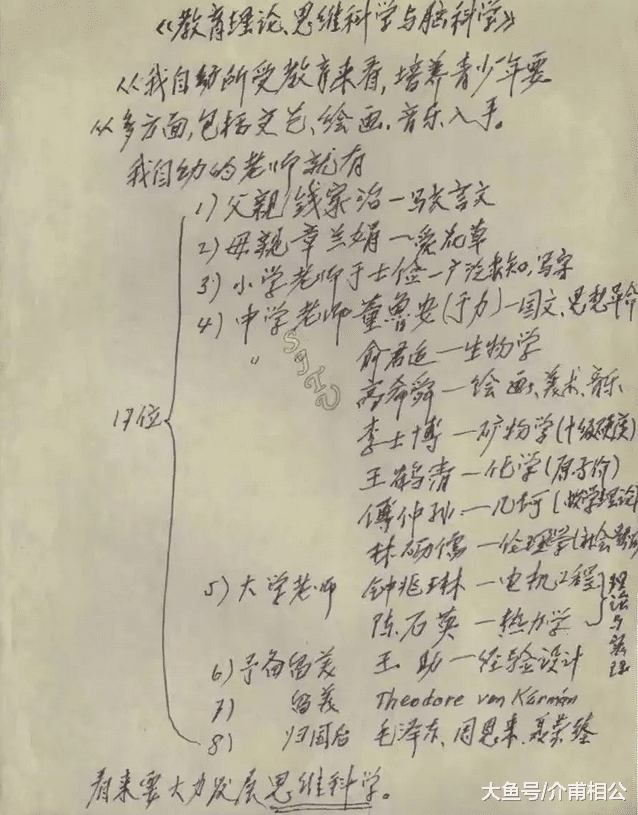 《教育理论、思维科学与脑科学》
从我自幼所受教育来看,培养青少年要
从多方面,包括文艺、绘画、音乐入手。
我自幼的老师就有
17位
1) 父亲 钱家治—写文言文
2) 母亲—章兰娟—爱花草
3) 小学老师于士俭—广泛求知,写字
4) 中学老师 董鲁安(于力)—国文、思想革命
〃 俞君适—生物学
高希舜—绘画、美术、音乐
李士博—矿物学(十级硬度)
王鹤清—化学(原子价)
傅仲孙—几何(数学理论)
林砺儒—伦理学(社会
5) 大学老师 钟兆琳—电机工程
陈石英—热力学
理论与实际
6) 予备留美 王助—经验设计
7) 留美 Theodore von Kármán
8) 归国后 毛泽东、周恩来、聂荣臻
看来要大力发展思维科学。
SJTU
大鱼号/介甫相公